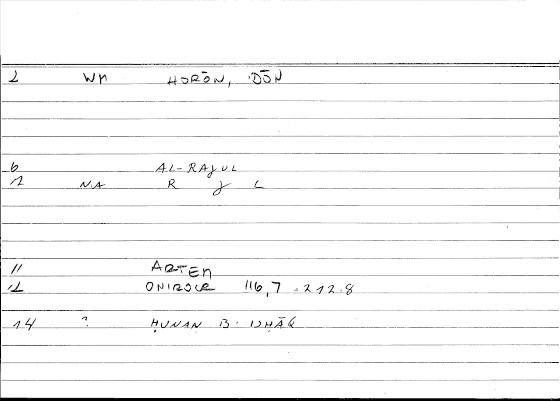 2 WM HORŌN, 'DŌN
6 AL-RAJUL
1 NA R J L
11 ARTEM
12 ONIROCR 116,7 = 212.8
14 ? ḤUNAN B. ISḤĀQ